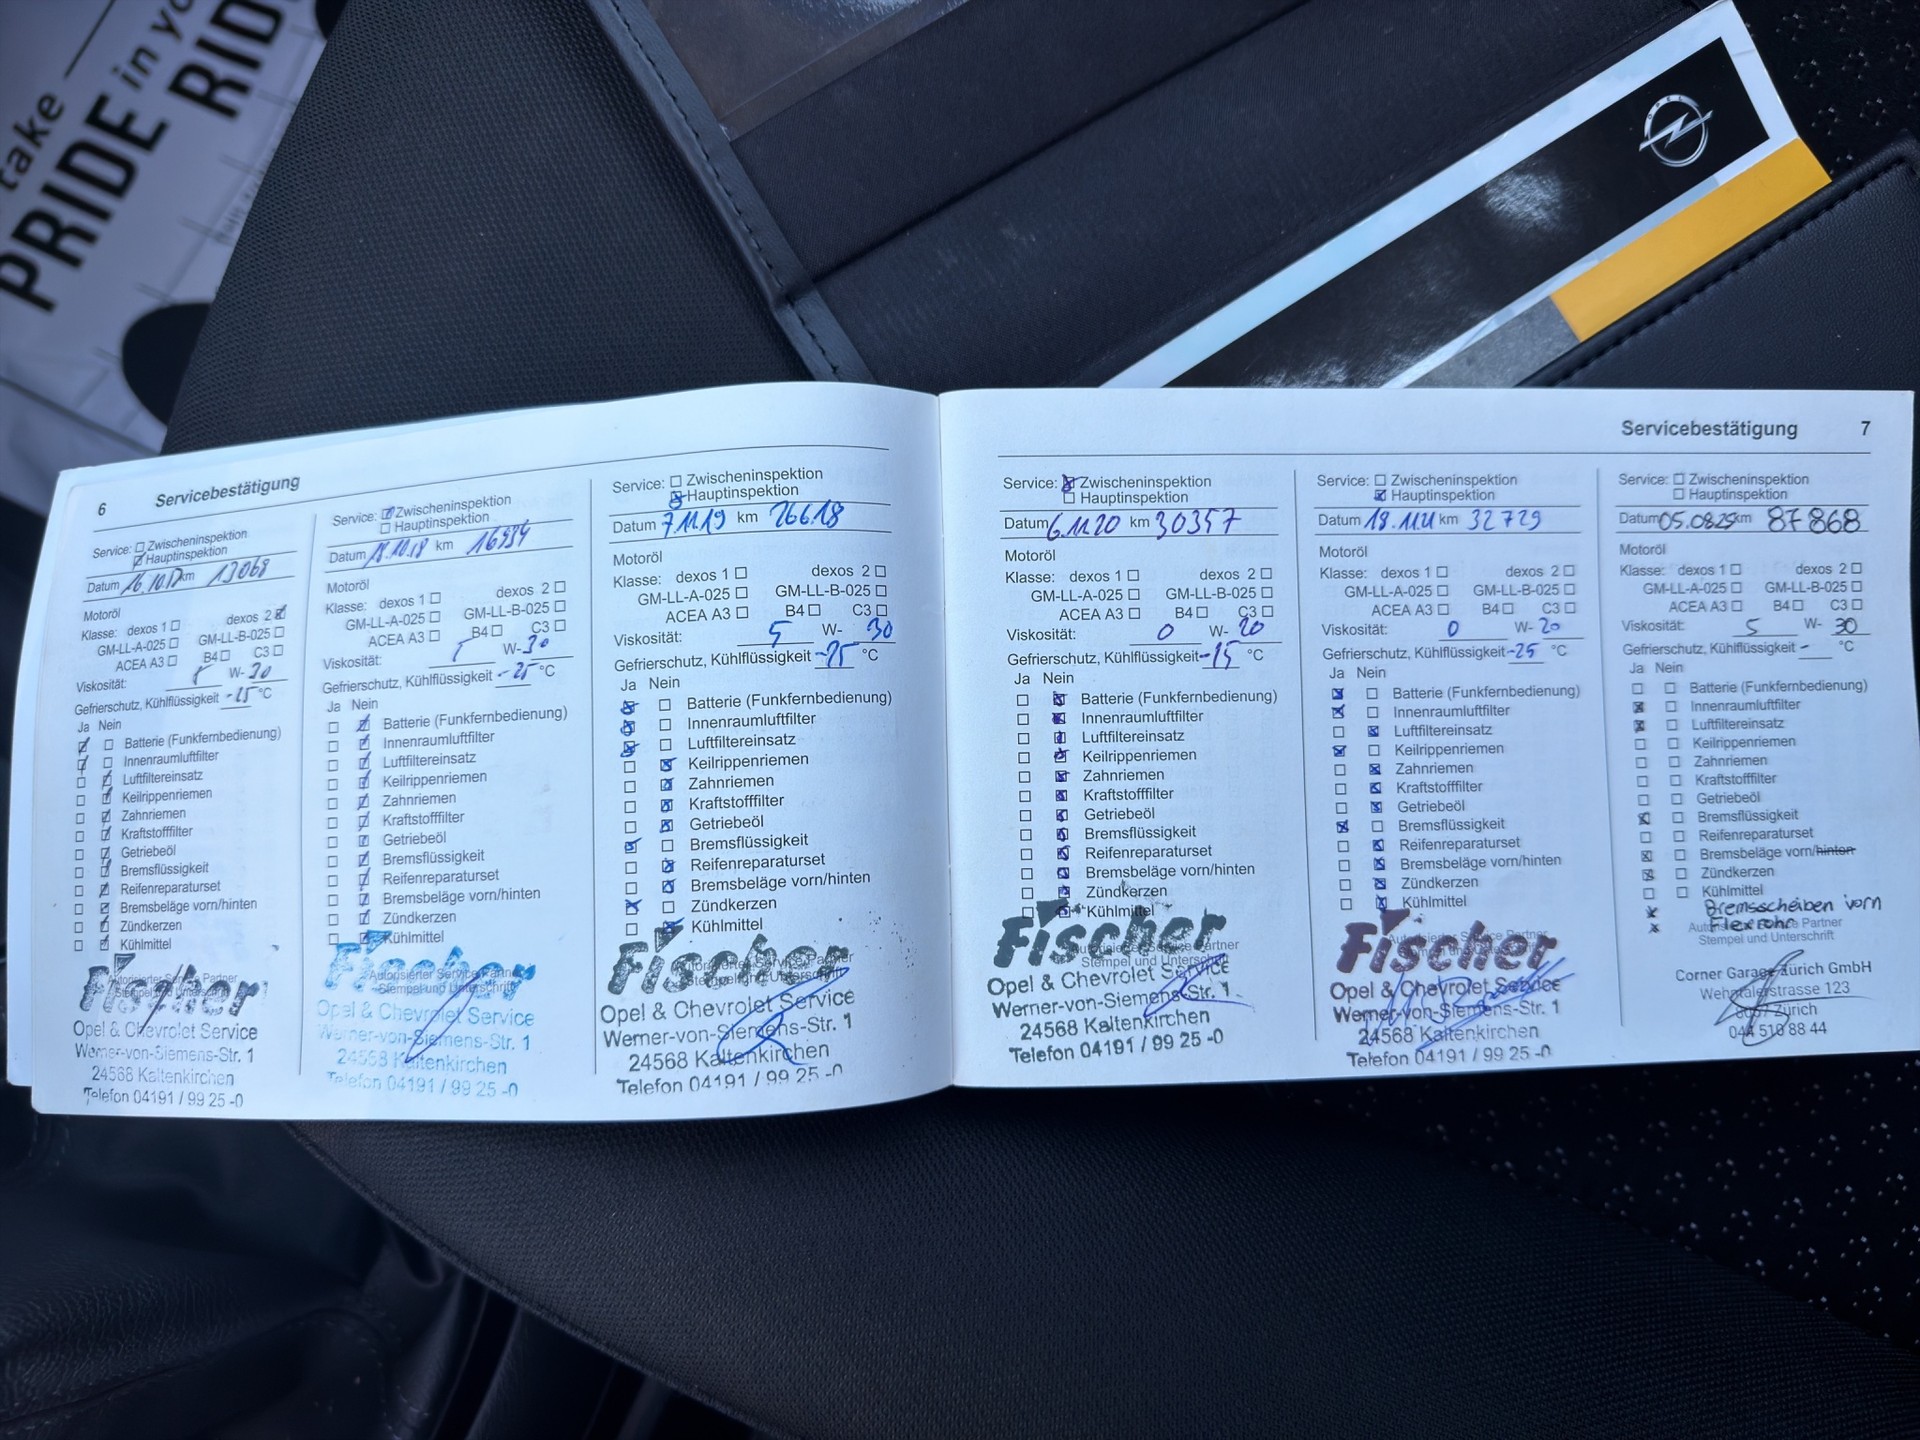 take
PRIDE in yo
RID
OPEL
6 Servicebestätigung
Service: Zwischeninspektion
Hauptinspektion
Datum 16.10.17 km 13068
Motoröl
Klasse: dexos 1 dexos 2
GM-LL-A-025 GM-LL-B-025
ACEA A3 B4 C3
Viskosität: 5 W- 30
Gefrierschutz, Kühlflüssigkeit -25 °C
Ja Nein
Batterie (Funkfernbedienung)
Innenraumluftfilter
Luftfiltereinsatz
Keilrippenriemen
Zahnriemen
Kraftstofffilter
Getriebeöl
Bremsflüssigkeit
Reifenreparaturset
Bremsbeläge vorn/hinten
Zündkerzen
Kühlmittel
Autorisierter Service Partner
Stempel und Unterschrift
Fischer
Opel & Chevrolet Service
Werner-von-Siemens-Str. 1
24568 Kaltenkirchen
Telefon 04191 / 99 25 -0
Service: Zwischeninspektion
Hauptinspektion
Datum 18.10.18 km 16994
Motoröl
Klasse: dexos 1 dexos 2
GM-LL-A-025 GM-LL-B-025
ACEA A3 B4 C3
Viskosität: 5 W- 30
Gefrierschutz, Kühlflüssigkeit -25 °C
Ja Nein
Batterie (Funkfernbedienung)
Innenraumluftfilter
Luftfiltereinsatz
Keilrippenriemen
Zahnriemen
Kraftstofffilter
Getriebeöl
Bremsflüssigkeit
Reifenreparaturset
Bremsbeläge vorn/hinten
Zündkerzen
Kühlmittel
Autorisierter Service Partner
Stempel und Unterschrift
Fischer
Opel & Chevrolet Service
Werner-von-Siemens-Str. 1
24568 Kaltenkirchen
Telefon 04191 / 99 25 -0
Service: Zwischeninspektion
Hauptinspektion
Datum 7.11.19 km 26618
Motoröl
Klasse: dexos 1 dexos 2
GM-LL-A-025 GM-LL-B-025
ACEA A3 B4 C3
Viskosität: 5 W- 30
Gefrierschutz, Kühlflüssigkeit -25 °C
Ja Nein
Batterie (Funkfernbedienung)
Innenraumluftfilter
Luftfiltereinsatz
Keilrippenriemen
Zahnriemen
Kraftstofffilter
Getriebeöl
Bremsflüssigkeit
Reifenreparaturset
Bremsbeläge vorn/hinten
Zündkerzen
Kühlmittel
Autorisierter Service Partner
Stempel und Unterschrift
Fischer
Opel & Chevrolet Service
Werner-von-Siemens-Str. 1
24568 Kaltenkirchen
Telefon 04191 / 99 25 -0
Servicebestätigung 7
Service: Zwischeninspektion
Hauptinspektion
Datum 6.11.20 km 30357
Motoröl
Klasse: dexos 1 dexos 2
GM-LL-A-025 GM-LL-B-025
ACEA A3 B4 C3
Viskosität: 0 W- 20
Gefrierschutz, Kühlflüssigkeit -25 °C
Ja Nein
Batterie (Funkfernbedienung)
Innenraumluftfilter
Luftfiltereinsatz
Keilrippenriemen
Zahnriemen
Kraftstofffilter
Getriebeöl
Bremsflüssigkeit
Reifenreparaturset
Bremsbeläge vorn/hinten
Zündkerzen
Kühlmittel
Autorisierter Service Partner
Stempel und Unterschrift
Fischer
Opel & Chevrolet Service
Werner-von-Siemens-Str. 1
24568 Kaltenkirchen
Telefon 04191 / 99 25 -0
Service: Zwischeninspektion
Hauptinspektion
Datum 18.11.21 km 32729
Motoröl
Klasse: dexos 1 dexos 2
GM-LL-A-025 GM-LL-B-025
ACEA A3 B4 C3
Viskosität: 0 W- 20
Gefrierschutz, Kühlflüssigkeit -25 °C
Ja Nein
Batterie (Funkfernbedienung)
Innenraumluftfilter
Luftfiltereinsatz
Keilrippenriemen
Zahnriemen
Kraftstofffilter
Getriebeöl
Bremsflüssigkeit
Reifenreparaturset
Bremsbeläge vorn/hinten
Zündkerzen
Kühlmittel
Autorisierter Service Partner
Stempel und Unterschrift
Fischer
Opel & Chevrolet Service
Werner-von-Siemens-Str. 1
24568 Kaltenkirchen
Telefon 04191 / 99 25 -0
Service: Zwischeninspektion
Hauptinspektion
Datum 05.08.25 km 87868
Motoröl
Klasse: dexos 1 dexos 2
GM-LL-A-025 GM-LL-B-025
ACEA A3 B4 C3
Viskosität: 5 W- 30
Gefrierschutz, Kühlflüssigkeit - °C
Ja Nein
Batterie (Funkfernbedienung)
Innenraumluftfilter
Luftfiltereinsatz
Keilrippenriemen
Zahnriemen
Kraftstofffilter
Getriebeöl
Bremsflüssigkeit
Reifenreparaturset
Bremsbeläge vorn/hinten
Zündkerzen
Kühlmittel
Bremsscheiben vorn
Flexrohr
Autorisierter Service Partner
Stempel und Unterschrift
Corner Garage Zürich GmbH
Wehntalerstrasse 123
8057 Zürich
044 510 88 44